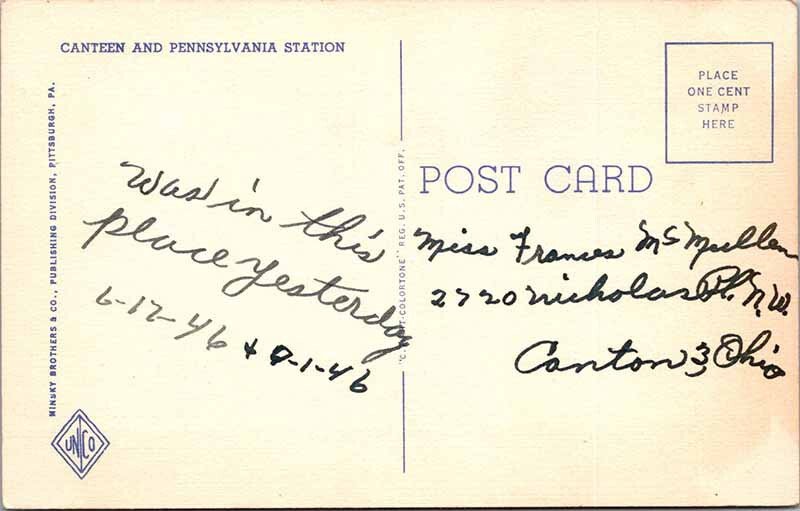 CANTEEN AND PENNSYLVANIA STATION
PLACE
ONE CENT
STAMP
HERE
POST CARD
Was in this
place yesterday
6-12-46 + 9-1-46
Miss Frances McMullen
2720 Nicholas Pl. N.W.
Canton 3, Ohio
MINSKY BROTHERS & CO., PUBLISHING DIVISION, PITTSBURGH, PA.
"C.T. ART-COLORTONE" REG. U.S. PAT. OFF.
UNICO